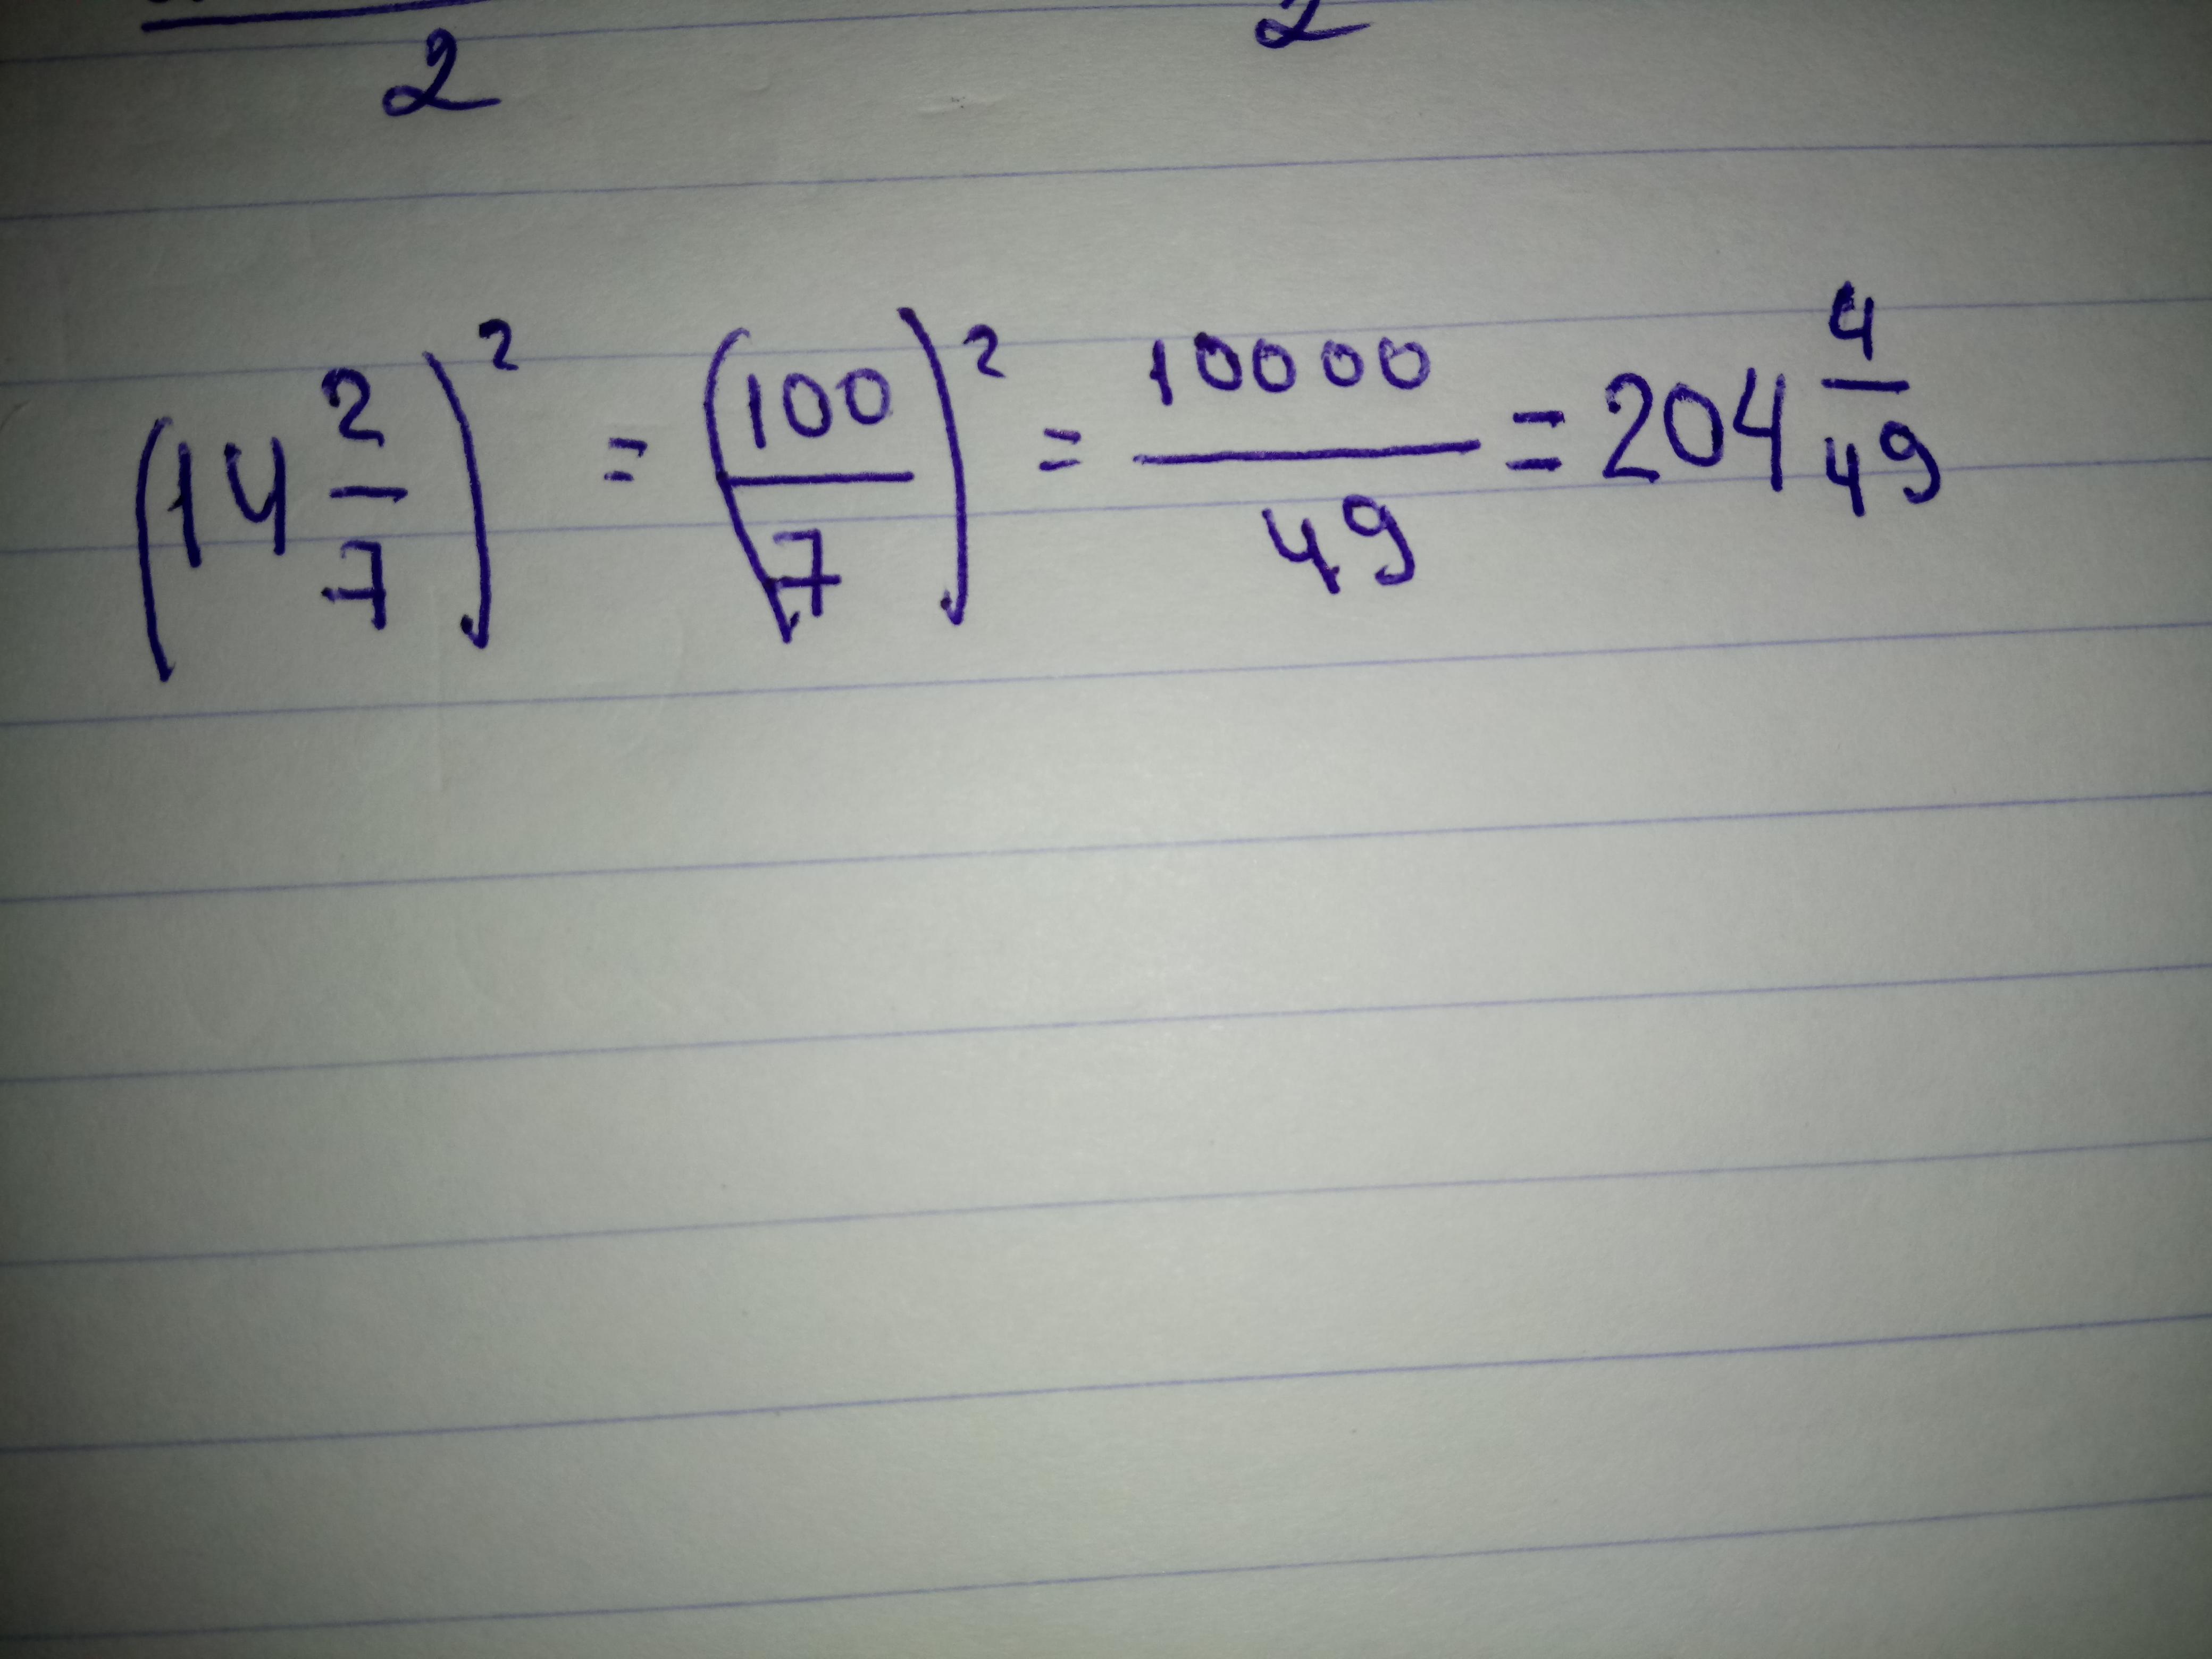 2 2
(14 2/7)² = (100/7)² = 10000/49 = 204 4/49